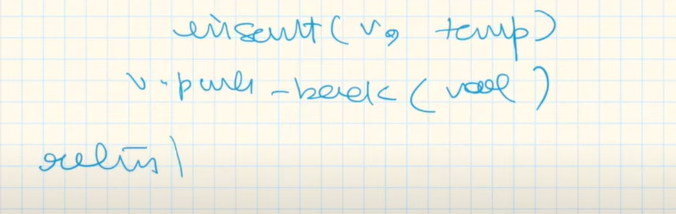 insert(v, temp)
v.push-back(val)
return